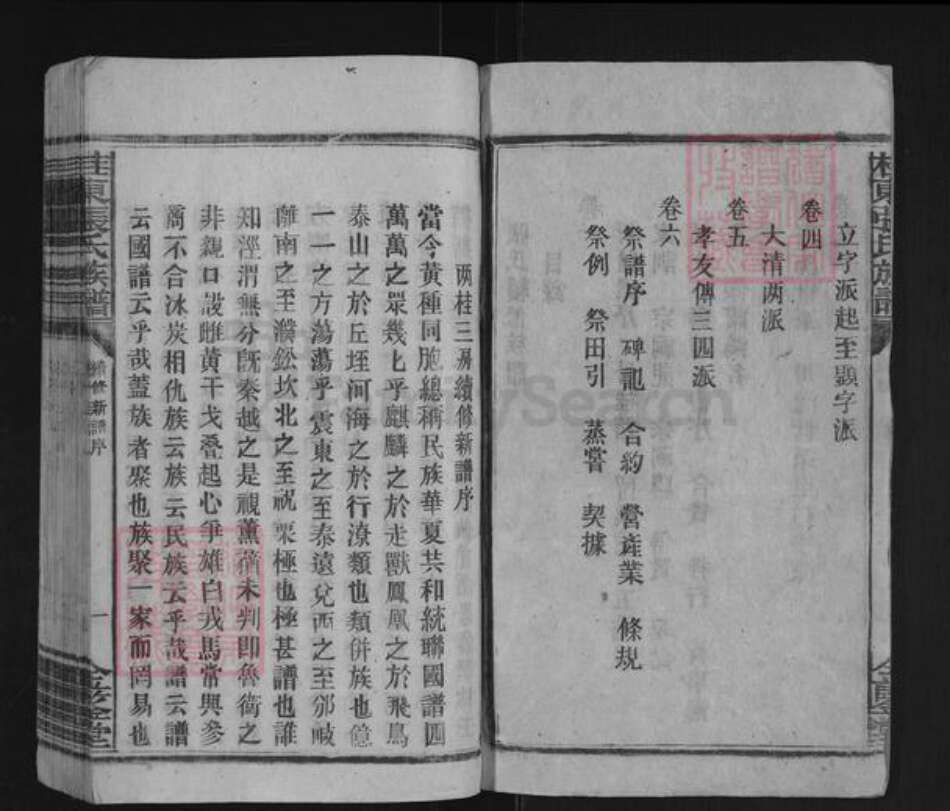 立字派起至顯字派
卷四
大清两派
卷五
孝友傳三四派
卷六
祭譜序 碑記 合約 營產業 條規
祭例 祭田引 蒸嘗 契據
桂東張氏族譜
两桂三房續修新譜序
當今黄種同胞總稱民族華夏共和統聯國譜四
萬萬之眾幾乎麒麟之於走獸鳳凰之於飛鳥
泰山之於丘垤河海之於行潦類也類併族也億
一一之方蕩蕩乎震東之至泰遠兌西之至邠岐
離南之至濮鈆坎北之至祝栗極也極甚譜也誰
知涇渭無分既秦越之是視薰蕕未判即魯衛之
非親口設雌黄干戈叠起心爭雄白戎馬常興參
商不合冰炭相仇族云族云民族云乎哉譜云譜
云國譜云乎哉蓋族者聚也族聚一家而罔易也
桂東張氏族譜
續修新譜序
一